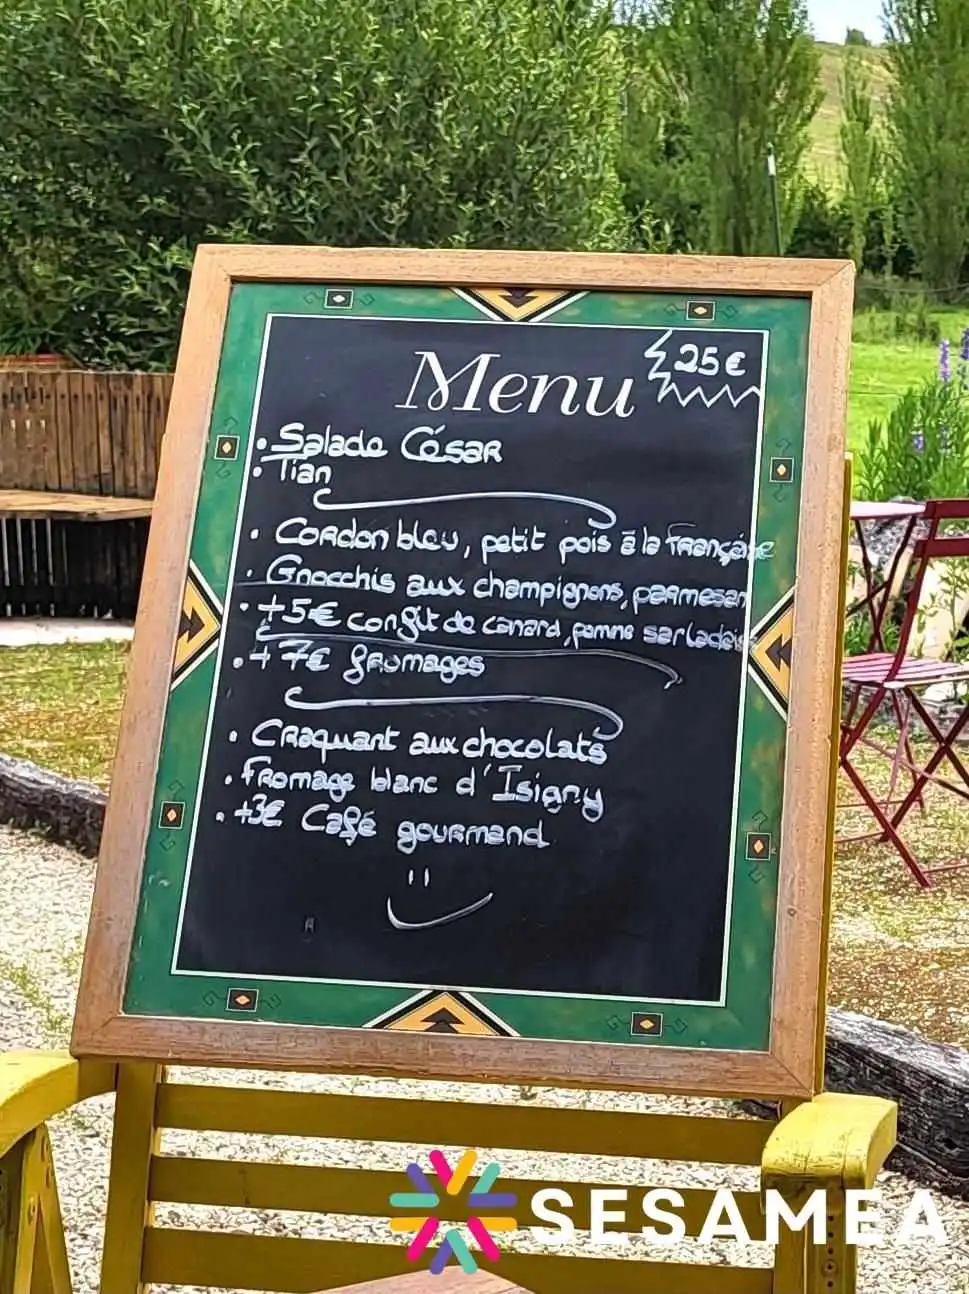 Menu
25€
• Salade César
• Tian
• Cordon bleu, petit pois à la Française
• Gnocchis aux champignons, parmesan
• +5€ confit de canard, pomme sarladaise
• + 7€ fromages
• Craquant aux chocolats
• Fromage blanc d'Isigny
• +3€ Café gourmand
SESAMEA